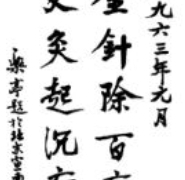 九六三年元月
針除百
灸起沉
樂亭題於北京